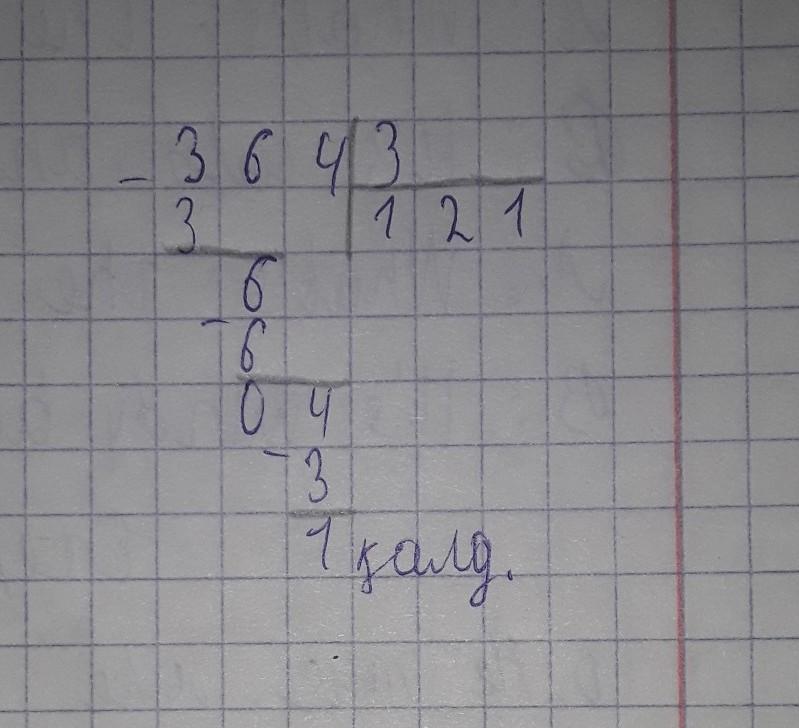 - 3 6 4 3
3 1 2 1
6
- 6
0 4
- 3
1 қалд.